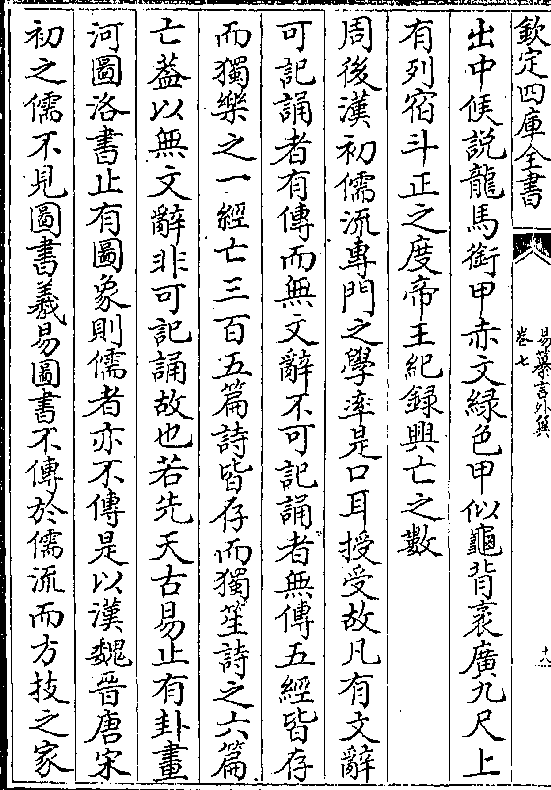 欽定四庫全書
易纂言外翼
卷七
十八
出中候説龍馬銜甲赤文緑色甲似龜背袤廣九尺上
有列宿斗正之度帝王紀録興亡之數
周後漢初儒流專門之學率是口耳授受故凡有文辭
可記誦者有傳而無文辭不可記誦者無傳五經皆存
而獨樂之一經亡三百五篇詩皆存而獨笙詩之六篇
亡葢以無文辭非可記誦故也若先天古易止有卦畫
河圖洛書止有圖象則儒者亦不傳是以漢魏晉唐宋
初之儒不見圖書羲易圖書不傳於儒流而方技之家